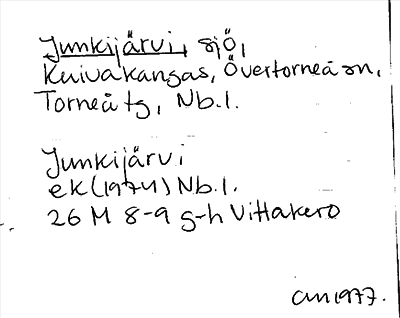 Junkijärvi, sjö,
Kuivakangas, Övertorneå sn,
Torneå tg, Nb.l.
Junkijärvi
ek (1974) Nb.l.
26 M 8-9 g-h Vittakero
AM 1977.